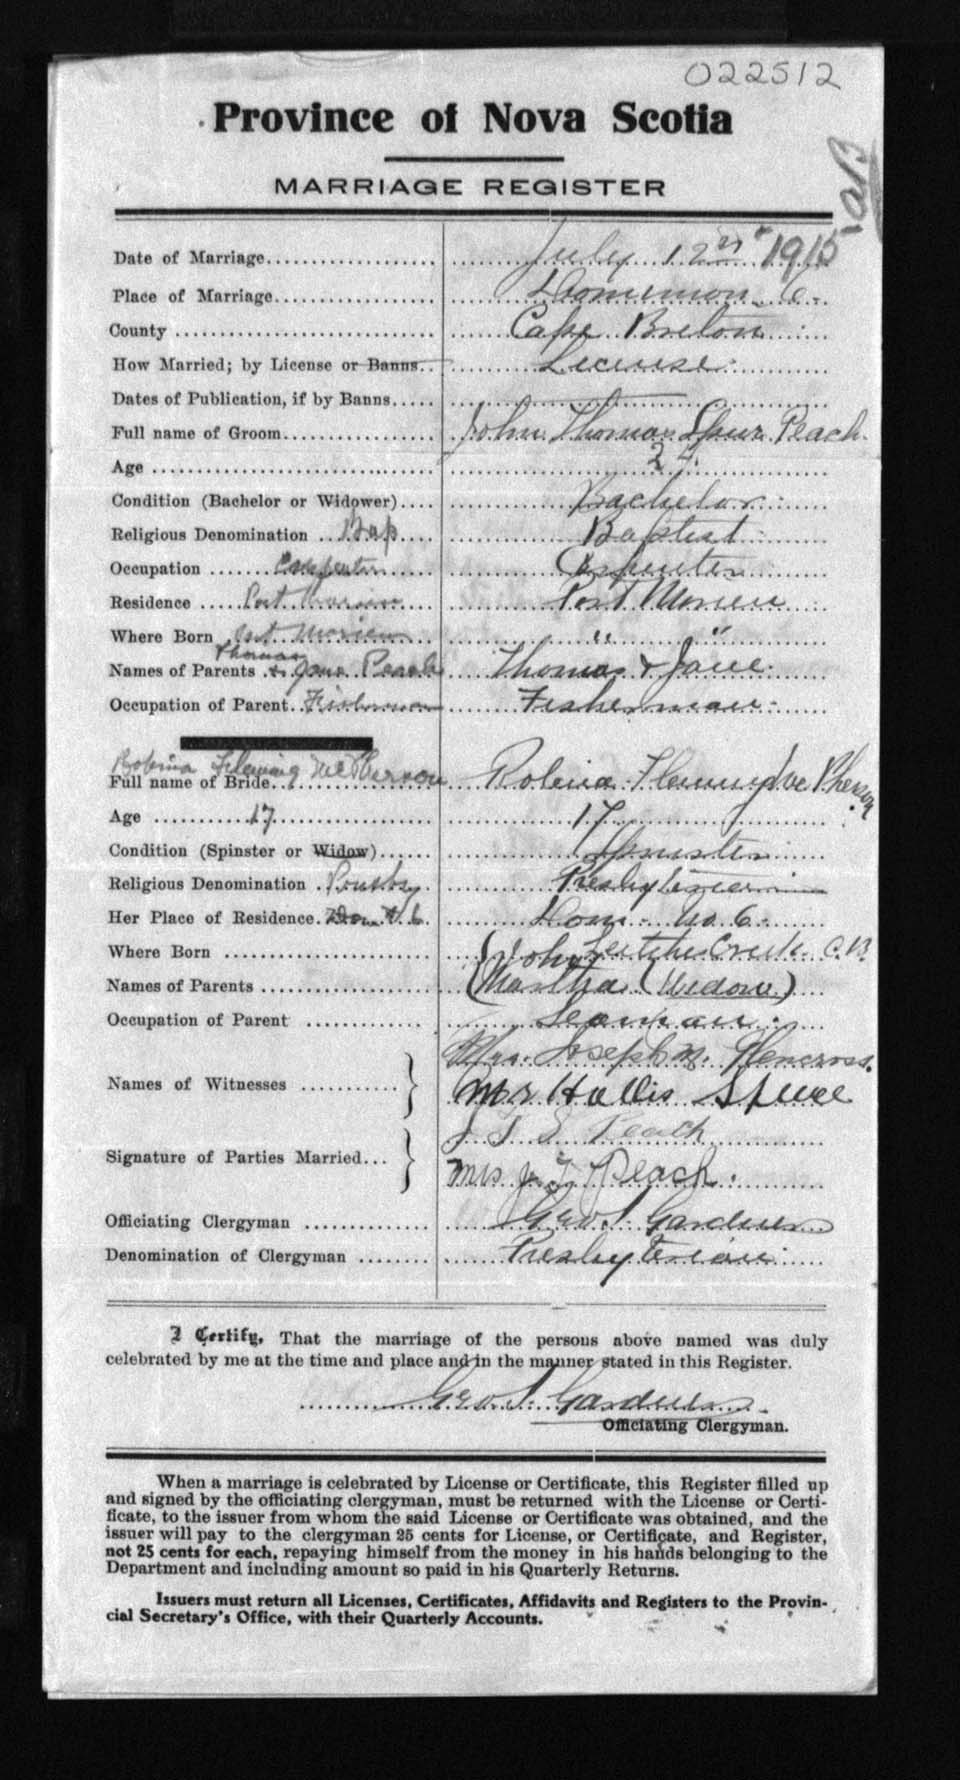 022512
Province of Nova Scotia
MARRIAGE REGISTER
Date of Marriage July 12 1915
Place of Marriage Dominion 6
County Cape Breton
How Married; by License or Banns License
Dates of Publication, if by Banns
Full name of Groom John Thomas Spur Peach
Age 24
Condition (Bachelor or Widower) Bachelor
Religious Denomination Bap Baptist
Occupation Carpenter Carpenter
Residence Port Morien Port Morien
Where Born Port Morien " "
Thomas
Names of Parents & Jane Peach Thomas & Jane
Occupation of Parent Fisherman Fisherman
Robina Fleming McPherson
Full name of Bride Robina Fleming McPherson
Age 17 17
Condition (Spinster or Widow) Spinster
Religious Denomination Presby Presbyterian
Her Place of Residence Dom # 6 Dom - No. 6 -
Where Born Leitches Creek C.B.
Names of Parents (John Martha (Widow)
Occupation of Parent Seaman
Mrs. Joseph Glencross.
Names of Witnesses
Mr Hollis Spur
J T S Peach
Signature of Parties Married
Mrs J T Peach.
Officiating Clergyman Geo. S. Gardner
Denomination of Clergyman Presbyterian
I Certify, That the marriage of the persons above named was duly
celebrated by me at the time and place and in the manner stated in this Register.
Geo. S. Gardner
Officiating Clergyman.
When a marriage is celebrated by License or Certificate, this Register filled up
and signed by the officiating clergyman, must be returned with the License or Certi-
ficate, to the issuer from whom the said License or Certificate was obtained, and the
issuer will pay to the clergyman 25 cents for License, or Certificate, and Register,
not 25 cents for each, repaying himself from the money in his hands belonging to the
Department and including amount so paid in his Quarterly Returns.
Issuers must return all Licenses, Certificates, Affidavits and Registers to the Provin-
cial Secretary's Office, with their Quarterly Accounts.